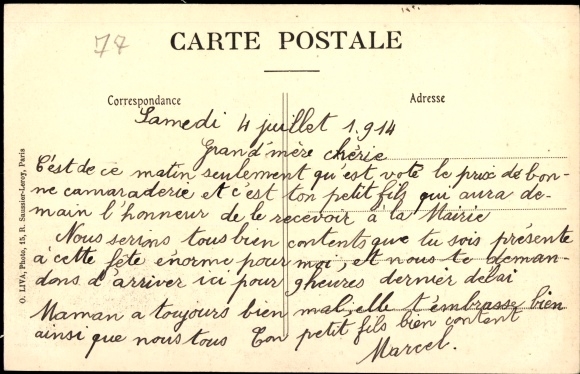 77
CARTE POSTALE
Correspondance
Adresse
Samedi 4 juillet 1.914
Grand'mère chérie
C'est de ce matin seulement qu'est voté le prix de bon-
ne camaraderie et c'est ton petit fils qui aura de-
main l'honneur de le recevoir à la Mairie
Nous serions tous bien contents que tu sois présente
à cette fête énorme pour moi, et nous te deman-
dons d'arriver ici pour 9 heures dernier délai
Maman a toujours bien mal; elle t'embrasse bien
ainsi que nous tous Ton petit fils bien content
Marcel.
O. LIVA, Photo, 15, R. Saussier-Leroy, Paris